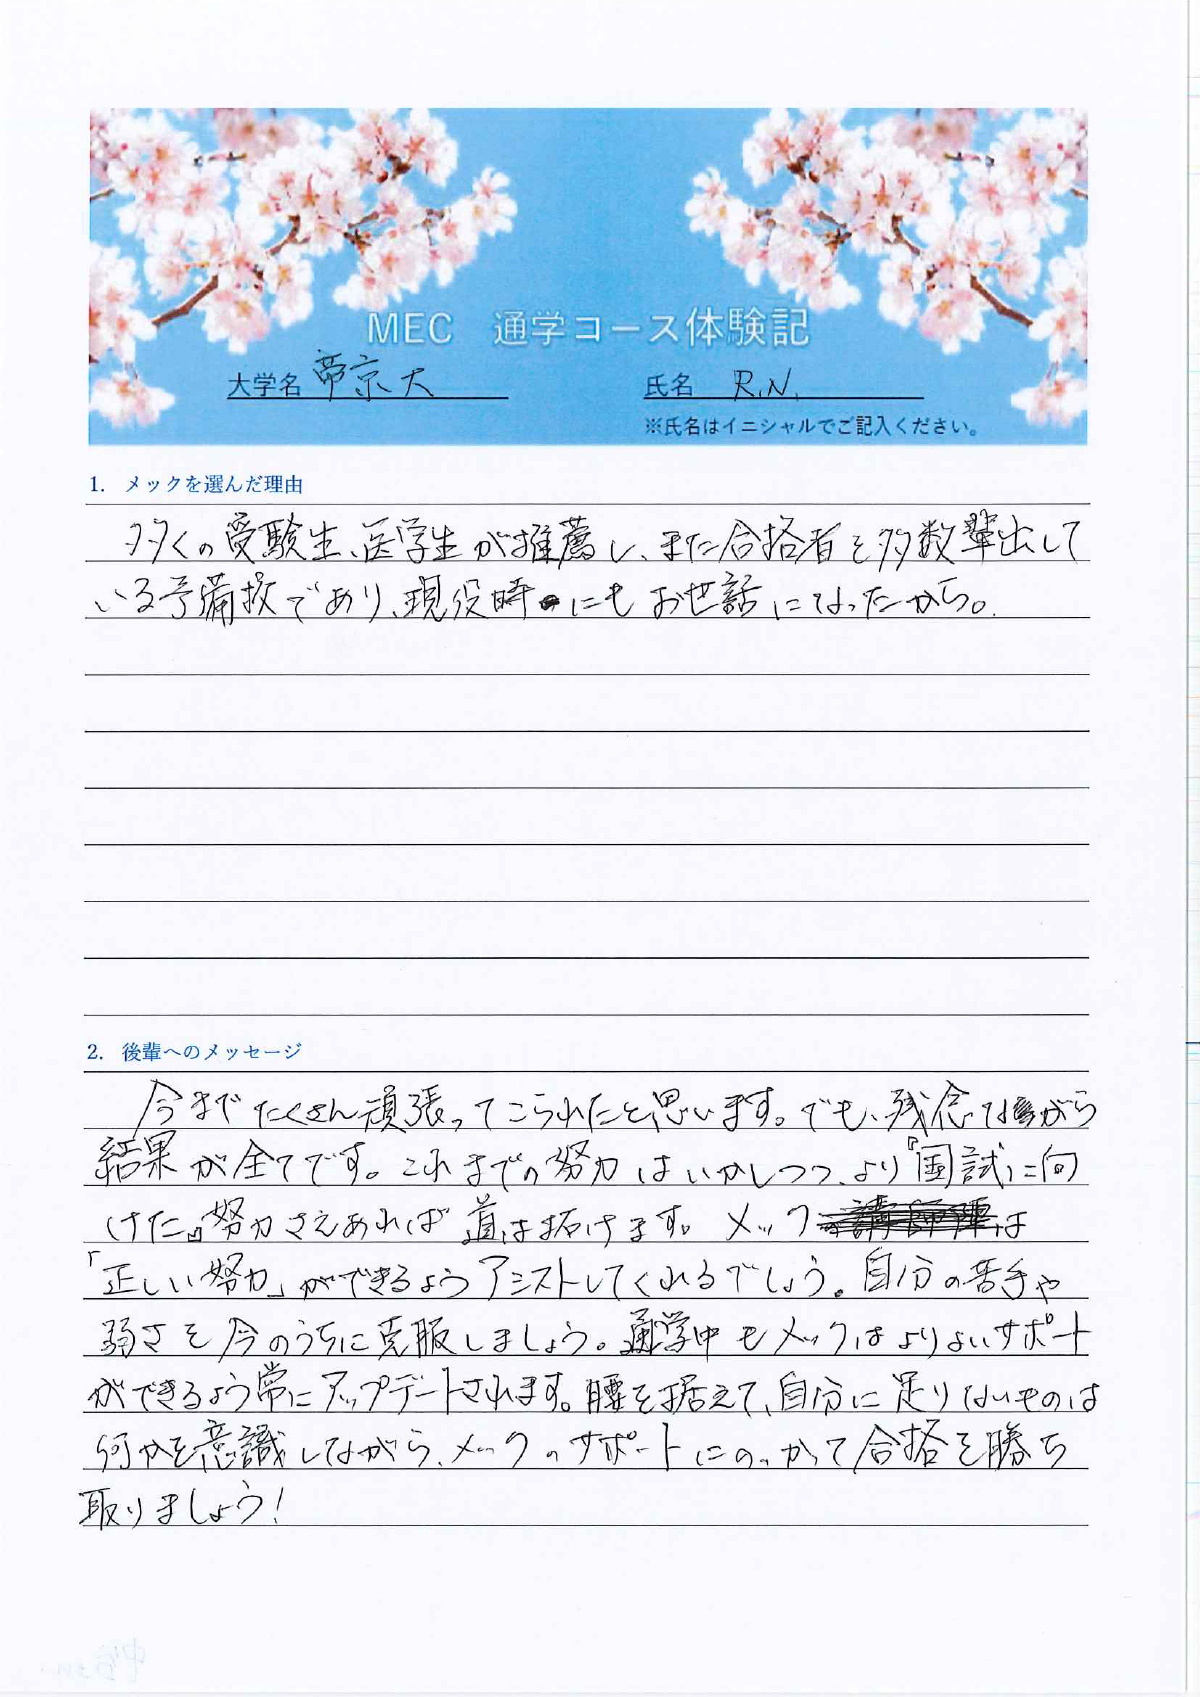 MEC 通学コース体験記
大学名 帝京大 氏名 R.N.
※氏名はイニシャルでご記入ください。
1. メックを選んだ理由
多くの受験生、医学生が推薦し、また合格者を多数輩出して
いる予備校であり、現役時にもお世話になったから。
2. 後輩へのメッセージ
今までたくさん頑張ってこられたと思います。でも、残念ながら
結果が全てです。これまでの努力はいかしつつ、より『国試に向
けた』努力さえあれば道は拓けます。メックは
「正しい努力」ができるようアシストしてくれるでしょう。自分の苦手や
弱さを今のうちに克服しましょう。通学中もメックはよりよいサポート
ができるよう常にアップデートされます。腰を据えて、自分に足りないものは
何かを意識しながら、メックのサポートにのっかって合格を勝ち
取りましょう!